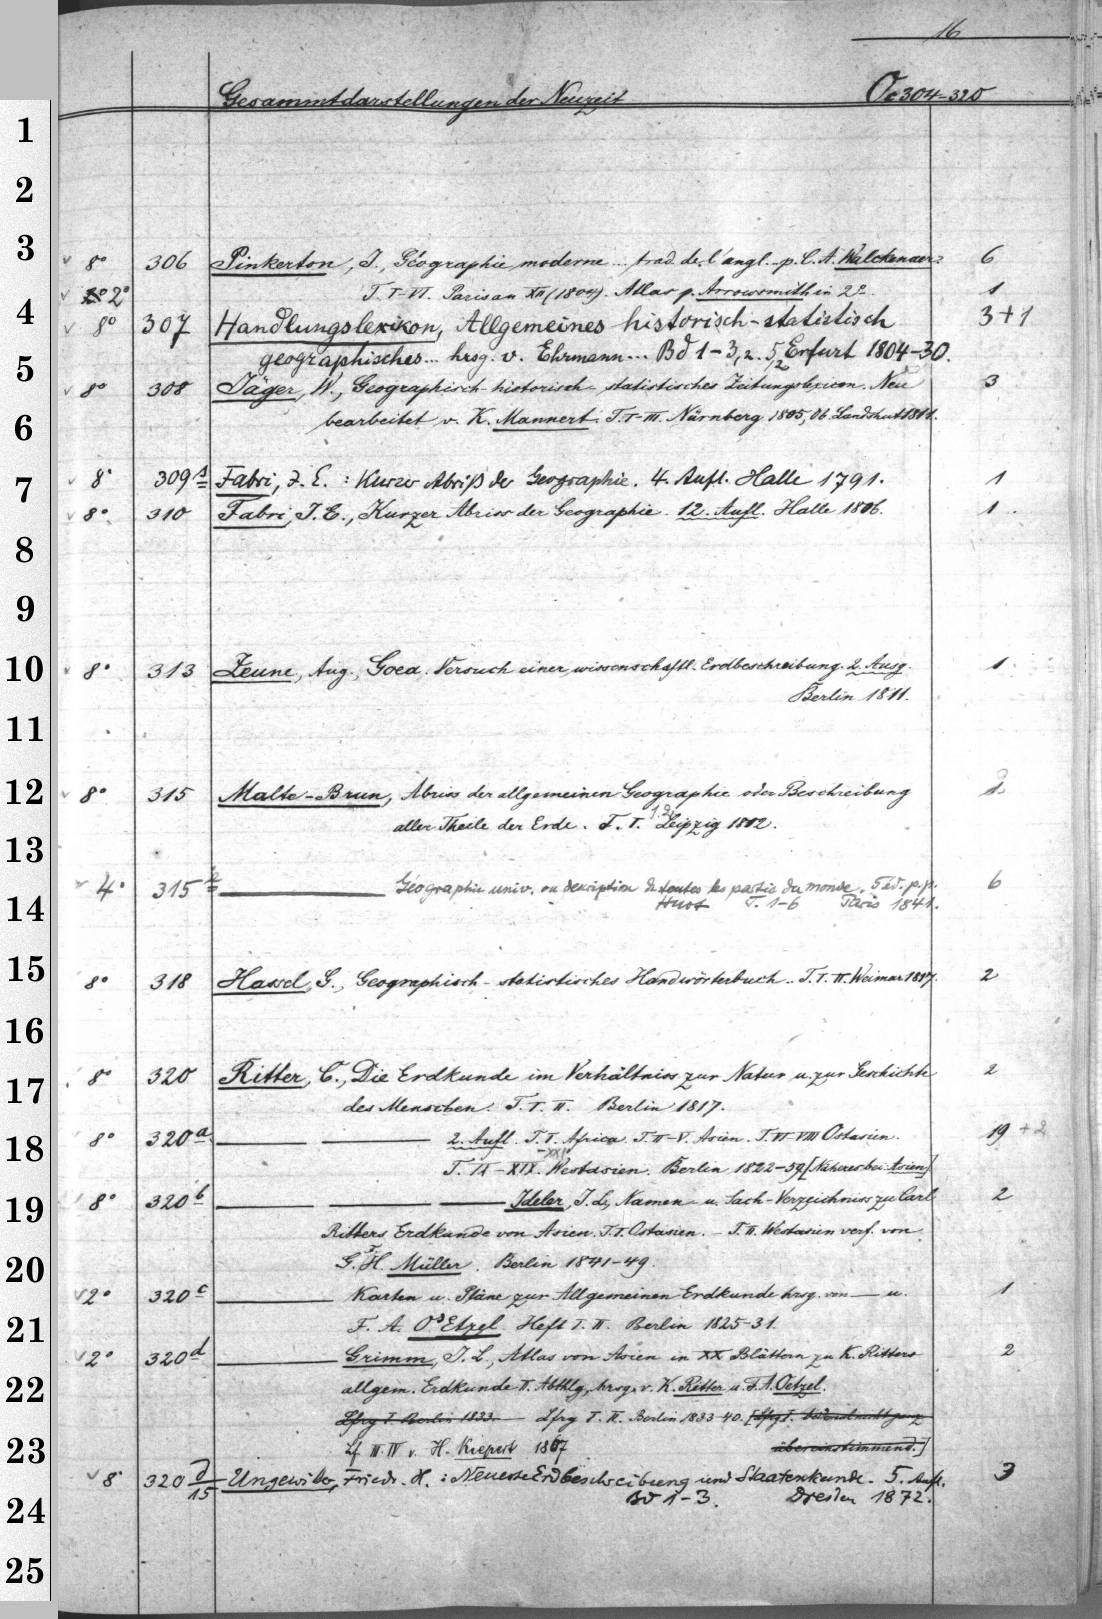 16
Gesammtdarstellungen der Neuzeit Oc 304-320
1
2
3
8° 306 Pinkerton, J., Géographie moderne... trad. de l'angl. p. C. A. Walckenaer. 6
2° T. I-VI. Paris an XII (1804). Atlas p. Arrowsmith in 2°. 1
4
8° 307 Handlungslexikon, Allgemeines historisch-statistisch 3+1
geographisches... hrsg. v. Ehrmann... Bd 1-3, 2. 5,2 Erfurt 1804-30.
5
8° 308 Jäger, W., Geographisch-historisch-statistisches Zeitungslexicon. Neu 3
6
bearbeitet v. K. Mannert. T. I-III. Nürnberg 1805, 06. Landshut 1811.
7
8° 309 Fabri, J. E.: Kurzer Abriß der Geographie. 4. Aufl. Halle 1791. 1
8° 310 Fabri, J. E., Kurzer Abriss der Geographie. 12. Aufl. Halle 1806. 1
8
9
10
8° 313 Zeune, Aug., Goea. Versuch einer wissenschaftl. Erdbeschreibung. 2. Ausg. 1
Berlin 1811.
11
12
8° 315 Malte-Brun, Abriss der allgemeinen Geographie oder Beschreibung
aller Theile der Erde. T. I. 1.2. Leipzig 1812.
13
4° 315 Géographie univ. ou description de toutes les partie du monde. 5 éd. p.p. 6
14
Huot T. 1-6 Paris 1841.
15
8° 318 Hassel, G., Geographisch-statistisches Handwörterbuch.. T. I. II. Weimar 1817. 2
16
17
8° 320 Ritter, C., Die Erdkunde im Verhältniss zur Natur u. zur Geschichte 2
des Menschen. T. I. II. Berlin 1817.
18
8° 320a 2. Aufl. T. I. Africa. T. II-V. Asien. T. VI-VIII Ostasien. 19 + 2
T. IX-XIX. -XXI Westasien. Berlin 1822-59 [Näheres bei Asien]
19
8° 320b Ideler, J. L., Namen- u. Sach-Verzeichniss zu Carl 2
Ritters Erdkunde von Asien. T. I. Ostasien. - T. II. Westasien verf. von
20
G. F. H. Müller. Berlin 1841-49.
2° 320c Karten u. Pläne zur Allgemeinen Erdkunde hrsg. von — u. 1
21
F. A. O'Etzel. Heft I. II. Berlin 1825-31.
2° 320d Grimm, J. L., Atlas von Asien in XX Blättern zu K. Ritters 2
22
allgem. Erdkunde II. Abthlg, hrsg. v. K. Ritter u. F. A. Oetzel.
Lfrg I. Berlin 1833. Lfrg I. II. Berlin 1833-40. [Lfrg I.
23
Lf. III. IV v. H. Kiepert 1867 übereinstimmend.]
8° 320 d/15 Ungewitter, Friedr. H.: Neueste Erdbeschreibung und Staatenkunde. 5. Aufl. 3
24
Bd 1-3. Dresden 1872.
25